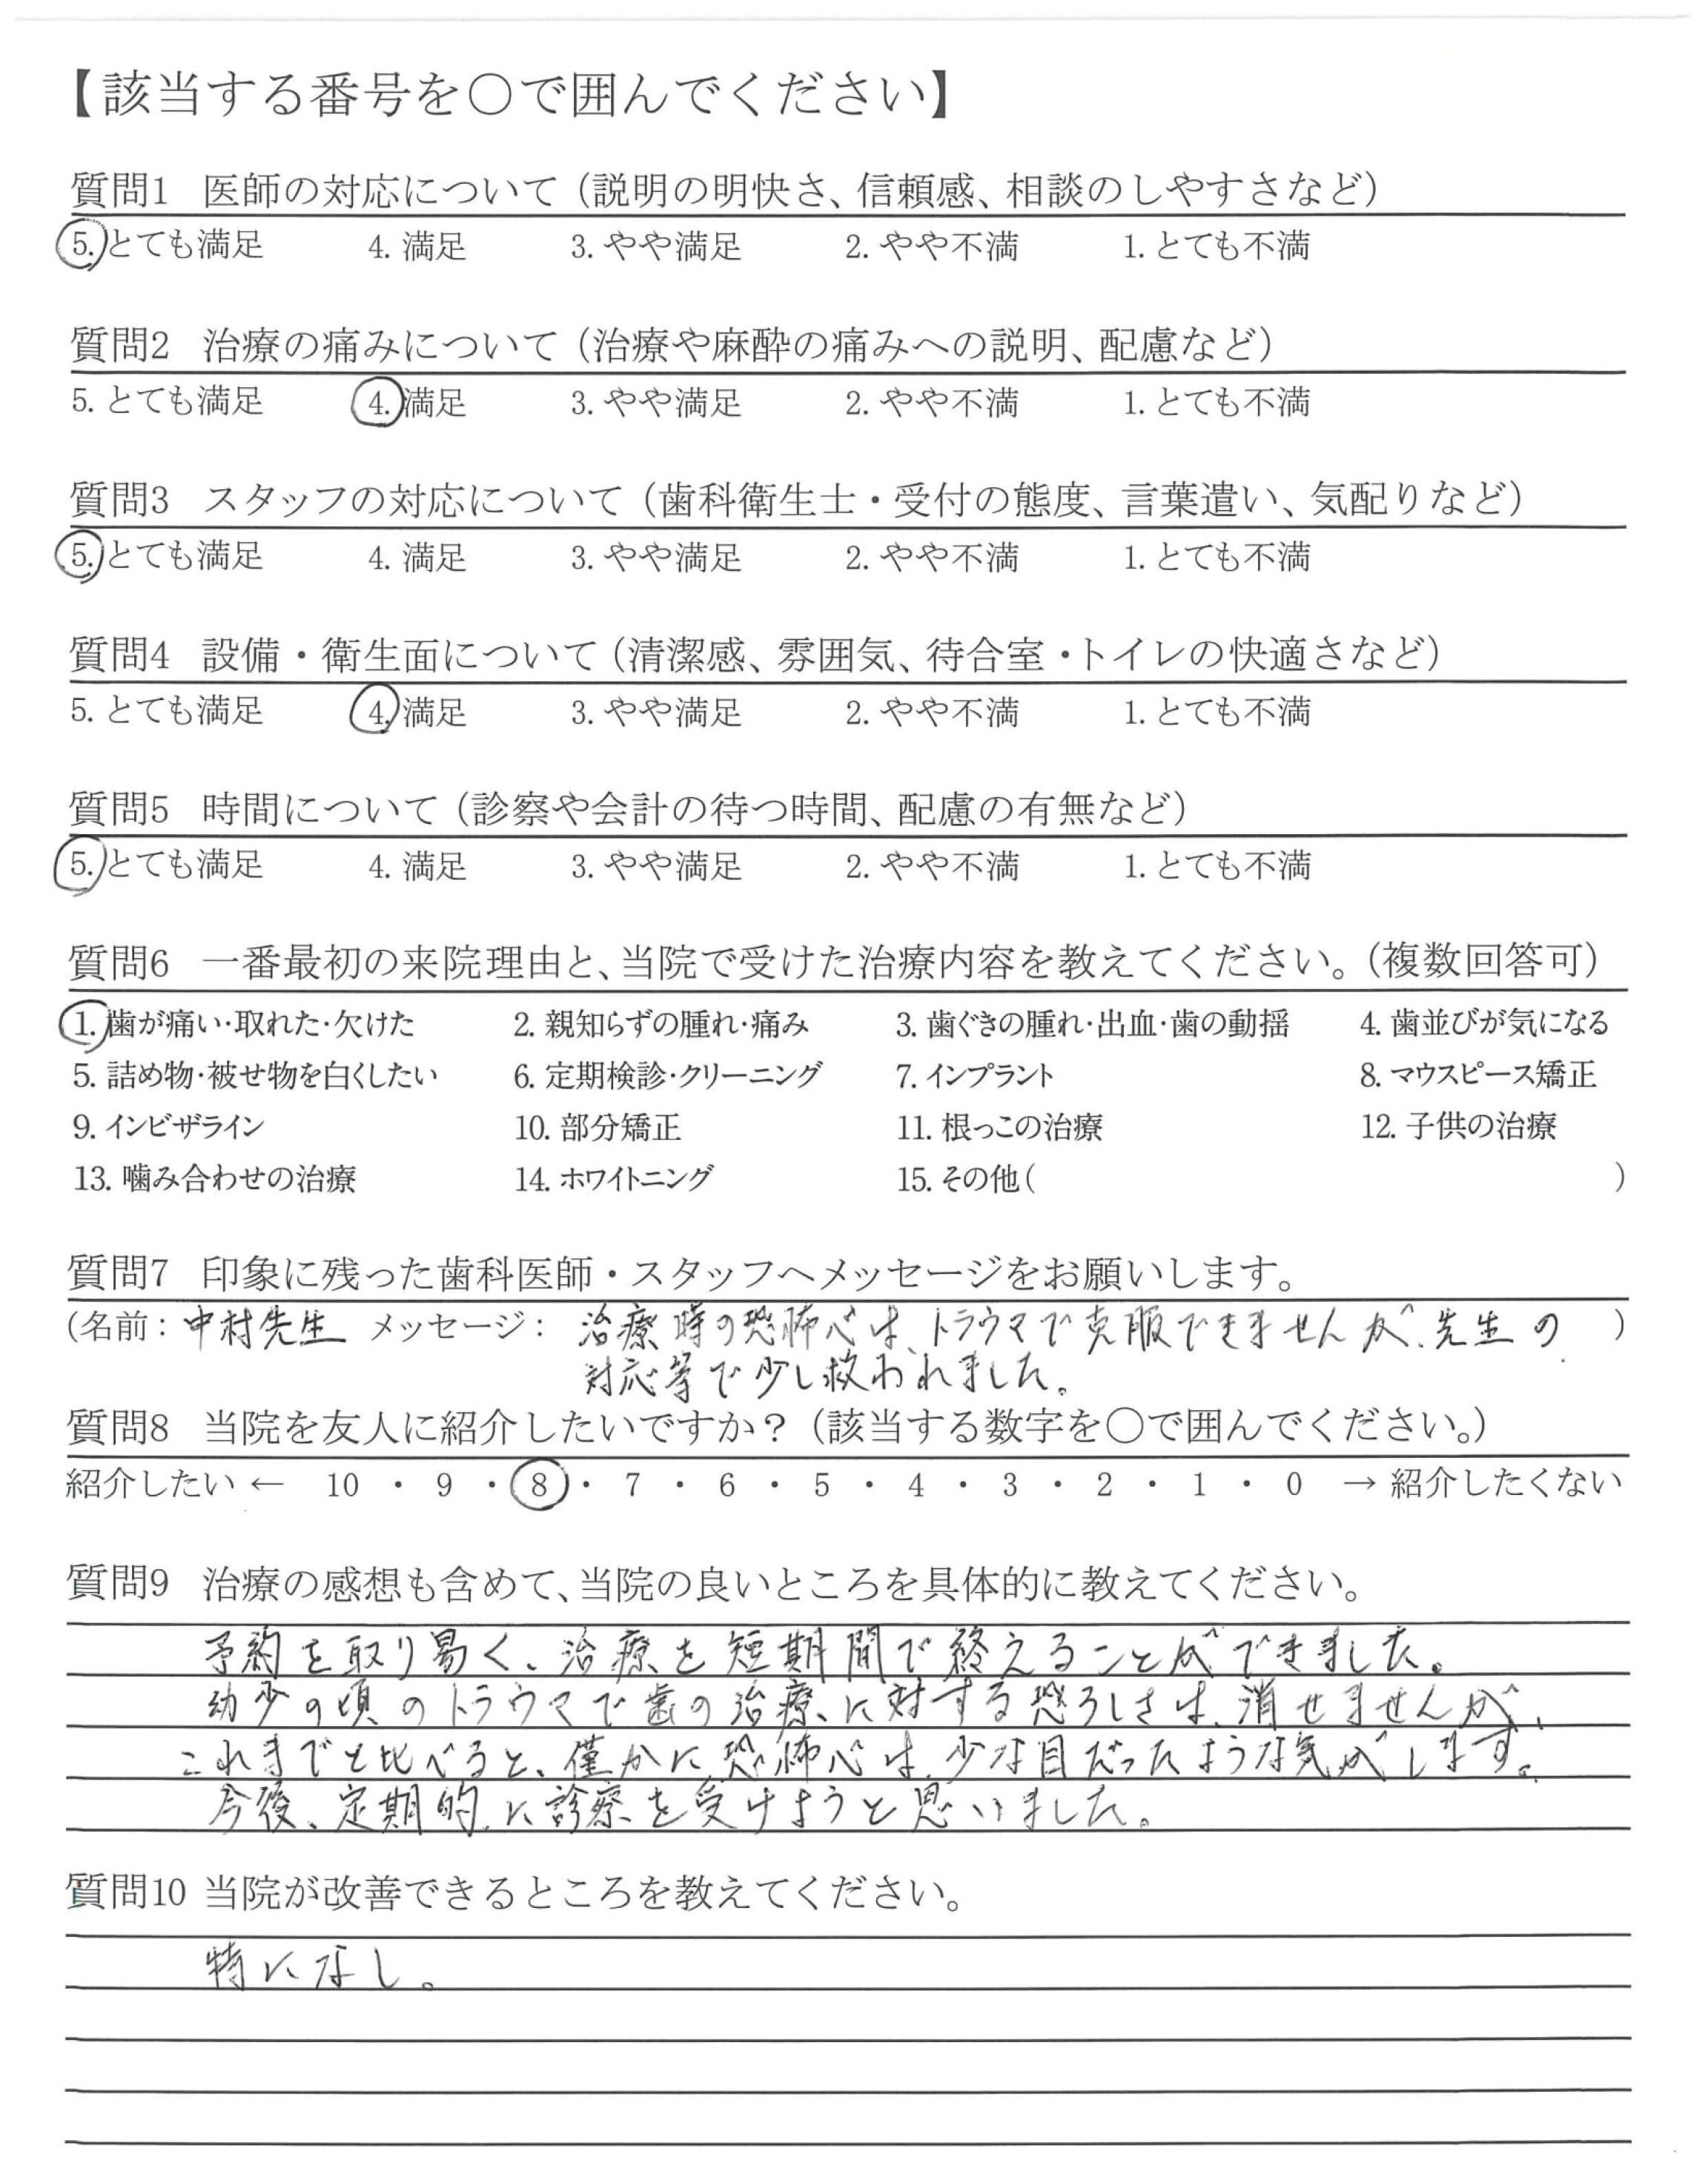 【該当する番号を○で囲んでください】
質問1 医師の対応について（説明の明快さ、信頼感、相談のしやすさなど）
5. とても満足 4. 満足 3. やや満足 2. やや不満 1. とても不満
質問2 治療の痛みについて（治療や麻酔の痛みへの説明、配慮など）
5. とても満足 4. 満足 3. やや満足 2. やや不満 1. とても不満
質問3 スタッフの対応について（歯科衛生士・受付の態度、言葉遣い、気配りなど）
5. とても満足 4. 満足 3. やや満足 2. やや不満 1. とても不満
質問4 設備・衛生面について（清潔感、雰囲気、待合室・トイレの快適さなど）
5. とても満足 4. 満足 3. やや満足 2. やや不満 1. とても不満
質問5 時間について（診察や会計の待つ時間、配慮の有無など）
5. とても満足 4. 満足 3. やや満足 2. やや不満 1. とても不満
質問6 一番最初の来院理由と、当院で受けた治療内容を教えてください。（複数回答可）
1. 歯が痛い・取れた・欠けた 2. 親知らずの腫れ・痛み 3. 歯ぐきの腫れ・出血・歯の動揺 4. 歯並びが気になる
5. 詰め物・被せ物を白くしたい 6. 定期検診・クリーニング 7. インプラント 8. マウスピース矯正
9. インビザライン 10. 部分矯正 11. 根っこの治療 12. 子供の治療
13. 噛み合わせの治療 14. ホワイトニング 15. その他（ ）
質問7 印象に残った歯科医師・スタッフへメッセージをお願いします。
（名前：中村先生 メッセージ： 治療時の恐怖心は、トラウマで克服できませんが、先生の ）
対応等で少し救われました。
質問8 当院を友人に紹介したいですか？（該当する数字を○で囲んでください。）
紹介したい ← 10 ・ 9 ・ 8 ・ 7 ・ 6 ・ 5 ・ 4 ・ 3 ・ 2 ・ 1 ・ 0 → 紹介したくない
質問9 治療の感想も含めて、当院の良いところを具体的に教えてください。
予約を取り易く、治療を短期間で終えることができました。
幼少の頃のトラウマで歯の治療に対する恐ろしさは、消せませんが、
これまでと比べると、僅かに恐怖心は、少な目だったような気がします。
今後、定期的に診察を受けようと思いました。
質問10 当院が改善できるところを教えてください。
特になし。